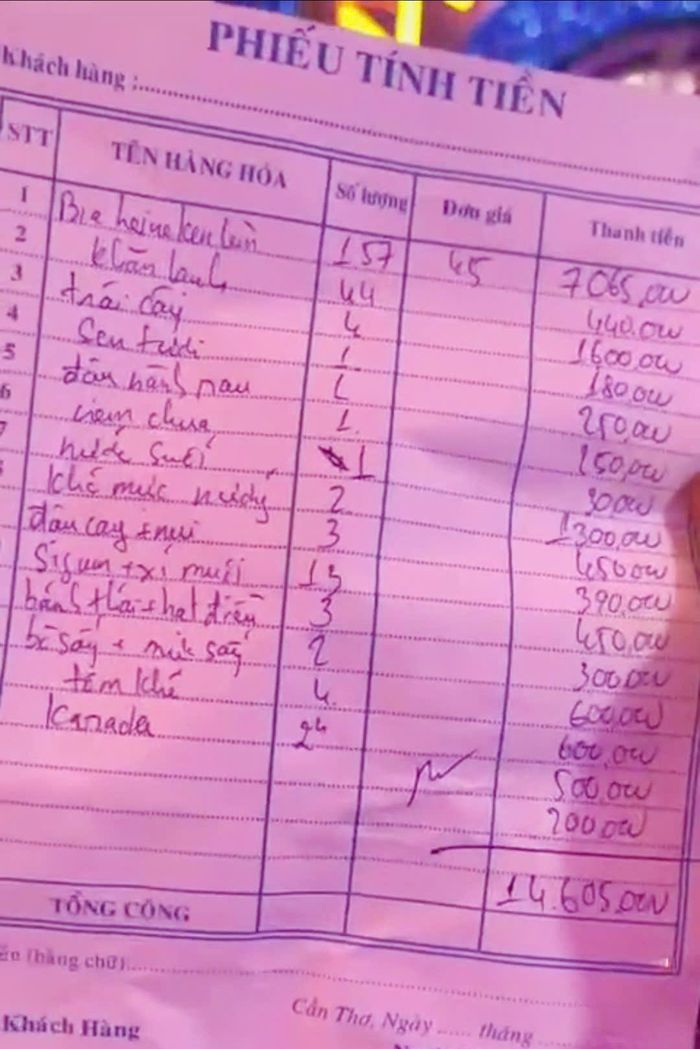 PHIẾU TÍNH TIỀN
Khách hàng :
STT TÊN HÀNG HÓA Số lượng Đơn giá Thanh tiền
1 Bia heineken lùn 157 45 7065,000
2 khăn lanh 44 440,000
3 trái cây 4 1600,000
4 Sen tươi 1 180,000
5 đậu 1 250,000
6 chua 1 250,000
7 nước suối 1 30000
Khô mực 2 1300,000
đậu cay + nui 3 450,000
Sigum + xí muội 13 390,000
bánh + hạt điều 3 450,000
bò sấy + mít sấy 2 300,000
tôm khô 4 600,000
Kanada 2h 600,000
500,000
200,000
14.605,000
TỔNG CỘNG
(bằng chữ)
Cần Thơ, Ngày ...... tháng
Khách Hàng